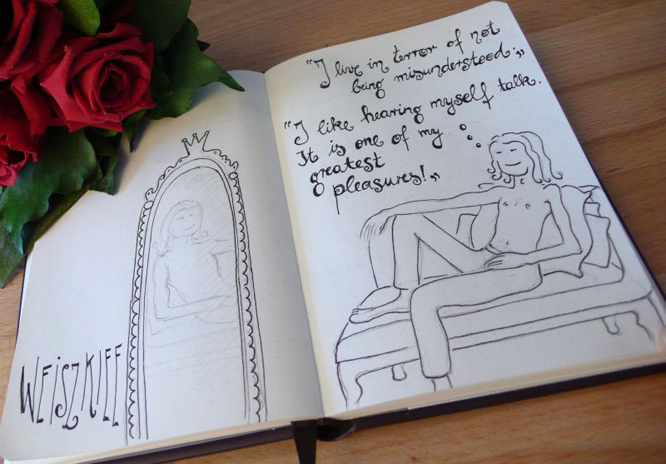 WEiSZKIEE
"I live in terror of not
being misunderstood."
"I like hearing myself talk.
It is one of my
greatest
pleasures!"